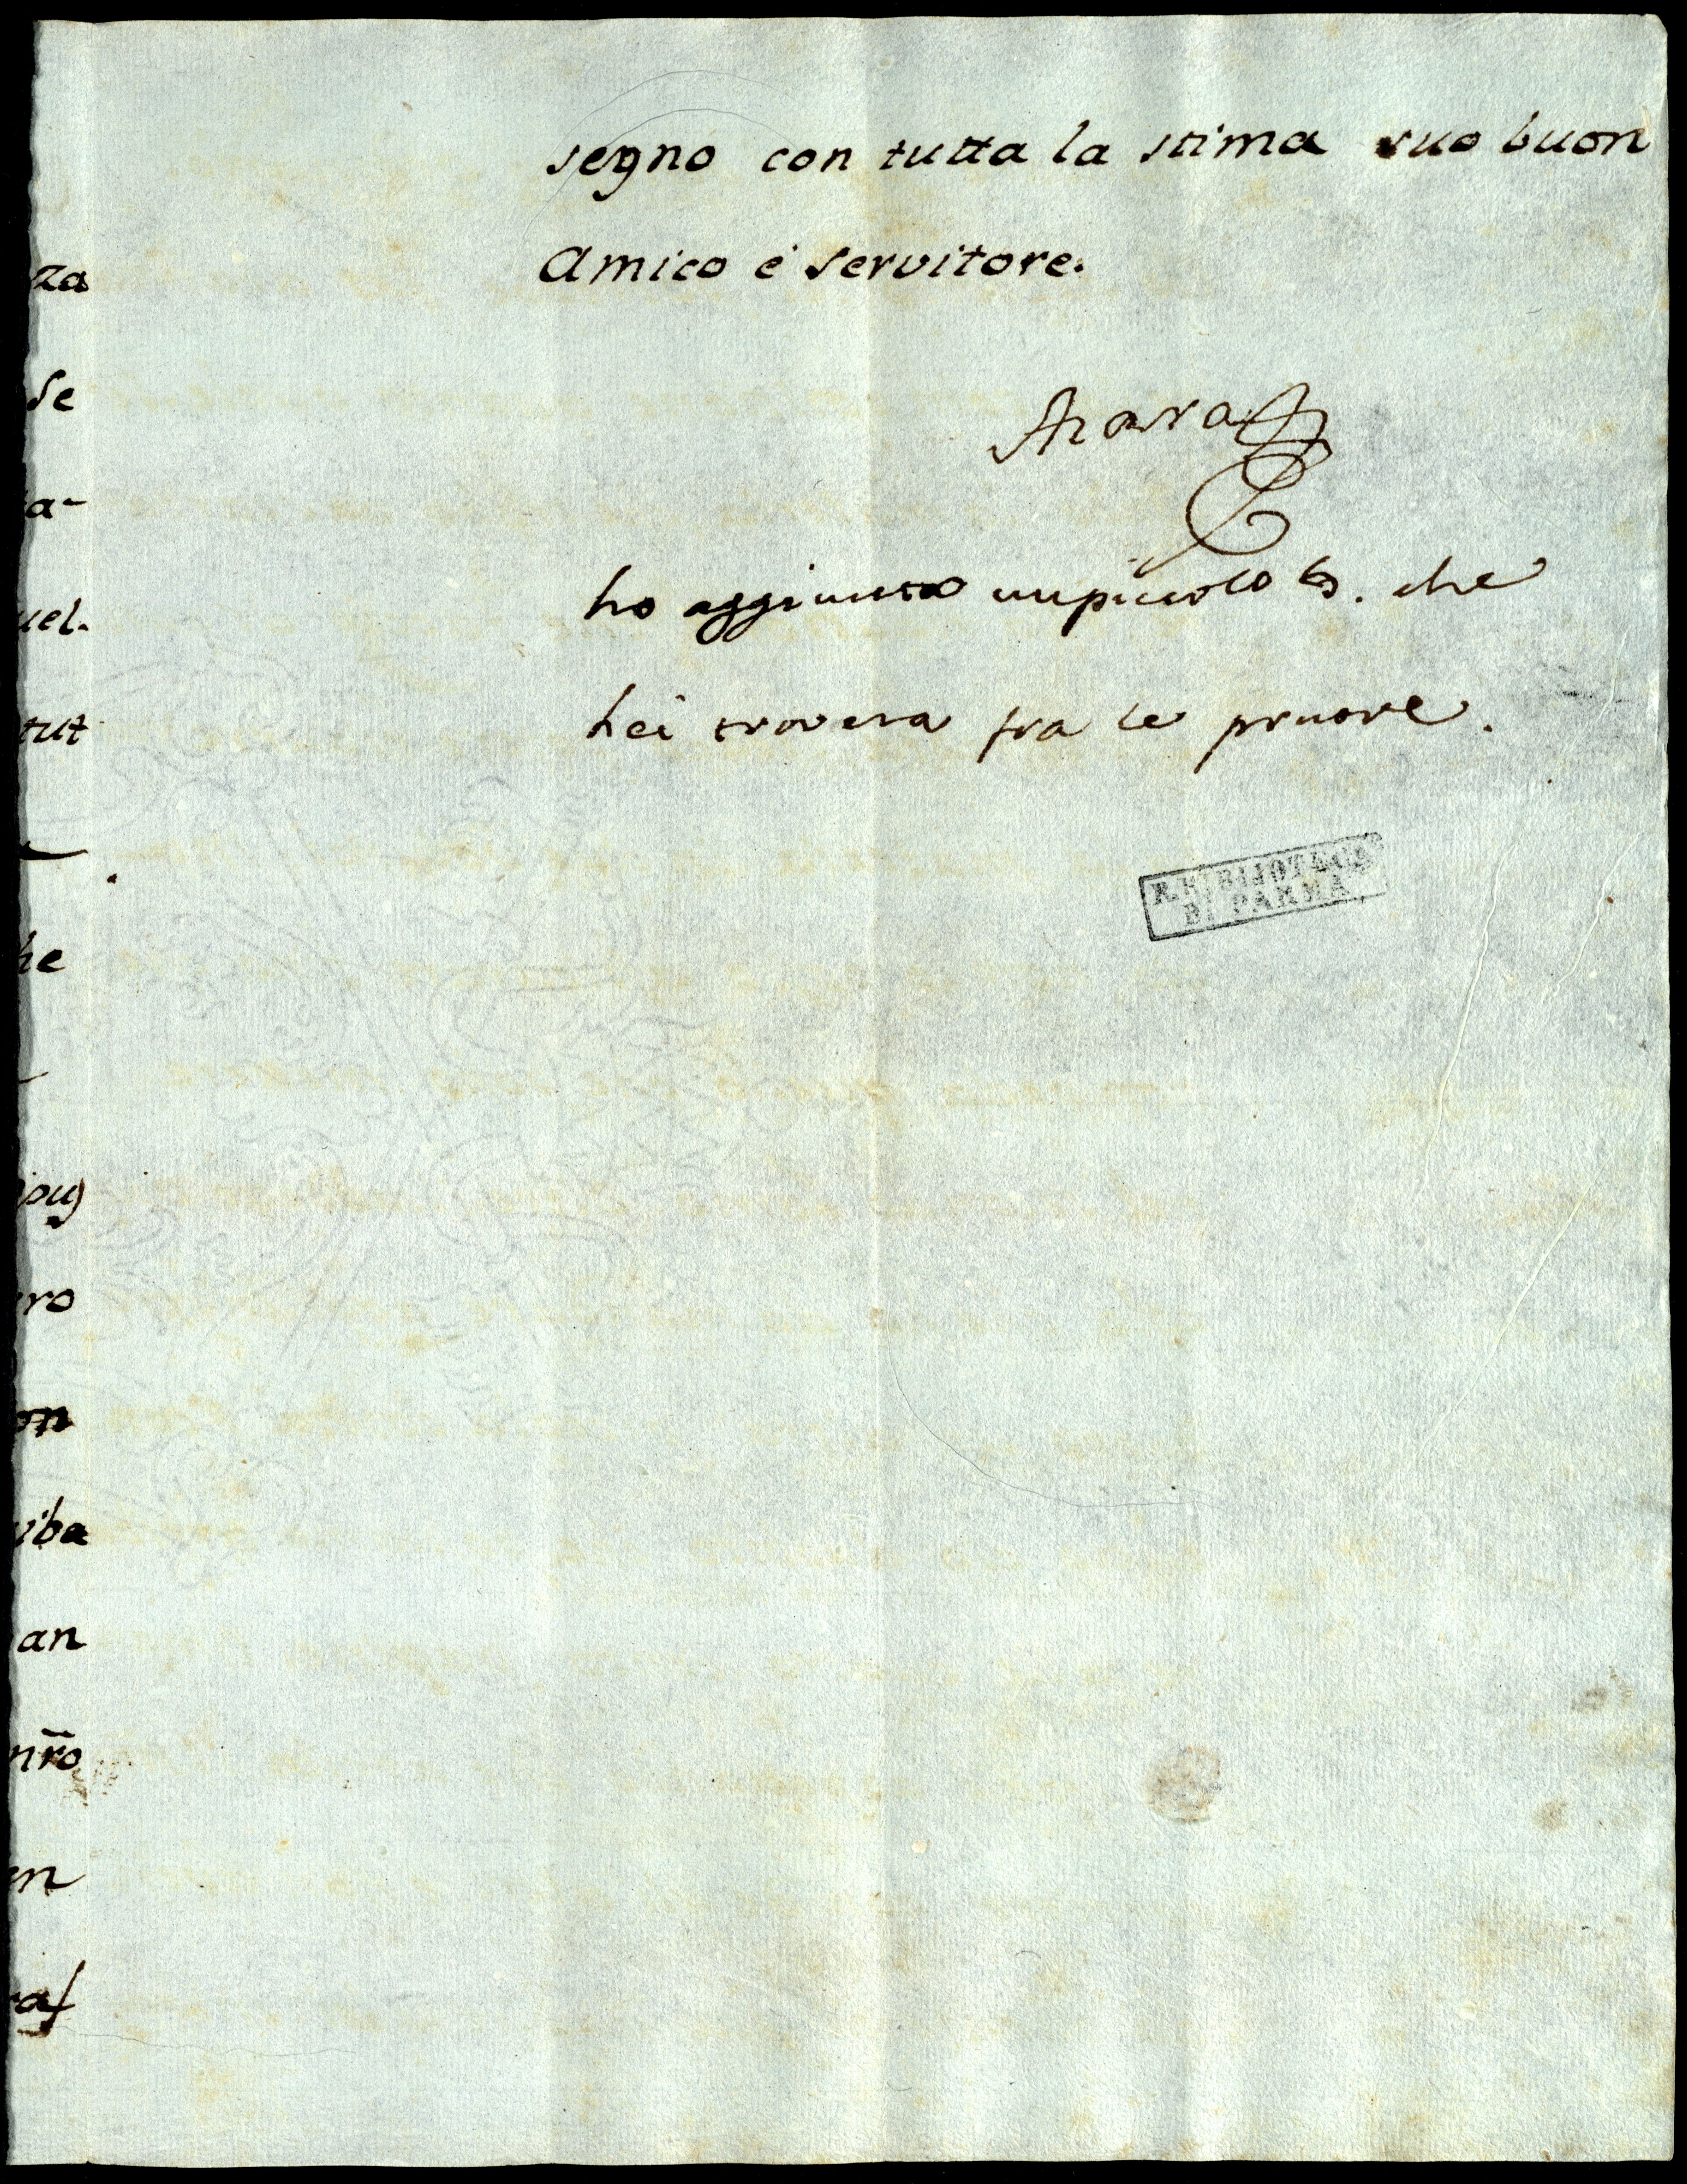 segno con tutta la stima suo buon
Amico e servitore.
Azara
ho aggiunto un piccolo che
lei trovera fra le pruove.
R. BIBLIOTECA
DI PARMA
za
se
a-
uel.
tut
he
ro
on
iba
an
nr̃o
en